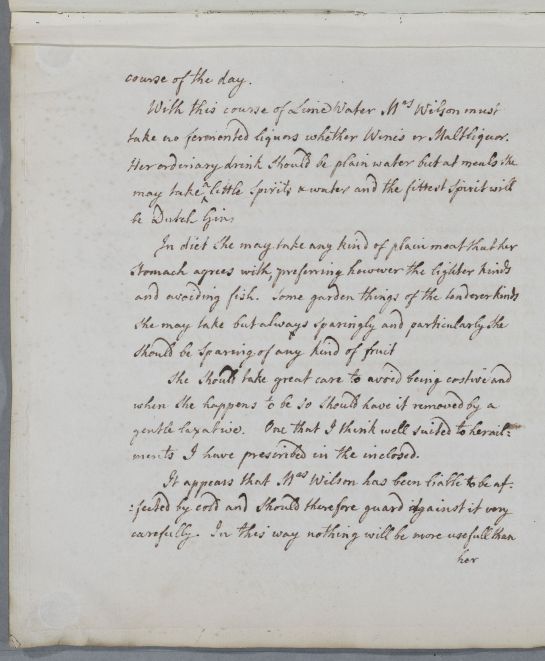 course of the day.
With this course of Lime Water Mrs Wilson must
take no fermented liquors whether Wines or Malt liquor.
Her ordinary drink should be plain water but at meals she
may take a little Spirits & water and the fittest Spirit will
be Dutch Gin.
In diet She may take any kind of plain meat that her
Stomach agrees with, preferring however the lighter kinds
and avoiding fish. Some garden things of the tenderer kinds
She may take but always sparingly and particularly She
should be sparing of any kind of fruit
She Should take great care to avoid being costive and
when she happens to be so should have it removed by a
gentle laxative. One that I think well suited to her ail=
ments I have prescribed in the inclosed.
It appears that Mrs Wilson has been liable to be af-
=fected by cold and should therefore guard against it very
carefully. In this way nothing will be more usefull than
her